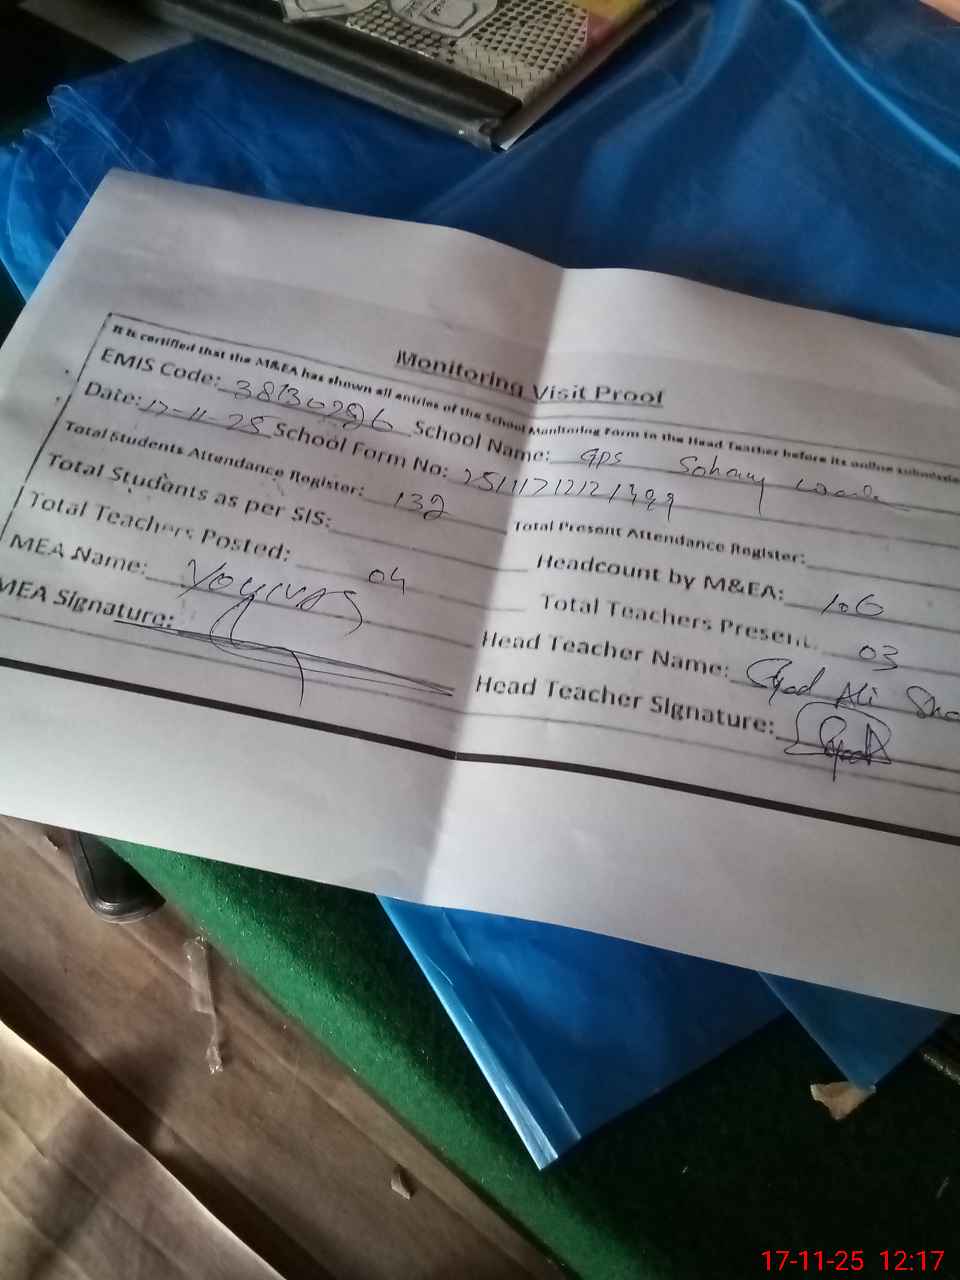 Monitoring Visit Proof
It is certified that the M&EA has shown all entries of the School Monitoring Form to the Head Teacher before its online submission
EMIS Code: 38130286 School Name: GPS Sohany
Date: 17-11-25 School Form No:
Total Students Attendance Register: 132 Total Present Attendance Register:
Total Students as per SIS: Headcount by M&EA: 106
Total Teachers Posted: 04 Total Teachers Present: 03
MEA Name: Head Teacher Name: Syed Ali
MEA Signature: Head Teacher Signature:
17-11-25 12:17